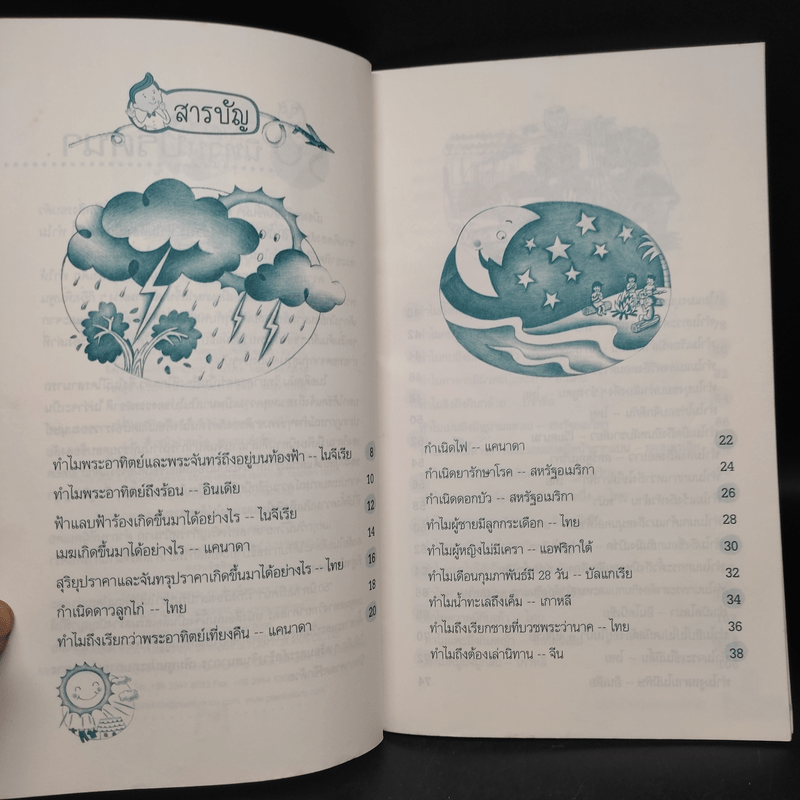 สารบัญ
ทำไมพระอาทิตย์และพระจันทร์ถึงอยู่บนท้องฟ้า -- ไนจีเรีย 8
ทำไมพระอาทิตย์ถึงร้อน -- อินเดีย 10
ฟ้าแลบฟ้าร้องเกิดขึ้นมาได้อย่างไร -- ไนจีเรีย 12
เมฆเกิดขึ้นมาได้อย่างไร -- แคนาดา 14
สุริยุปราคาและจันทรุปราคาเกิดขึ้นมาได้อย่างไร -- ไทย 16
กำเนิดดาวลูกไก่ -- ไทย 18
ทำไมถึงเรียกว่าพระอาทิตย์เที่ยงคืน -- แคนาดา 20
กำเนิดไฟ -- แคนาดา 22
กำเนิดยารักษาโรค -- สหรัฐอเมริกา 24
กำเนิดดอกบัว -- สหรัฐอเมริกา 26
ทำไมผู้ชายมีลูกกระเดือก -- ไทย 28
ทำไมผู้หญิงไม่มีเครา -- แอฟริกาใต้ 30
ทำไมเดือนกุมภาพันธ์มี 28 วัน -- บัลแกเรีย 32
ทำไมน้ำทะเลถึงเค็ม -- เกาหลี 34
ทำไมถึงเรียกชายที่บวชพระว่านาค -- ไทย 36
ทำไมถึงต้องเล่านิทาน -- จีน 38